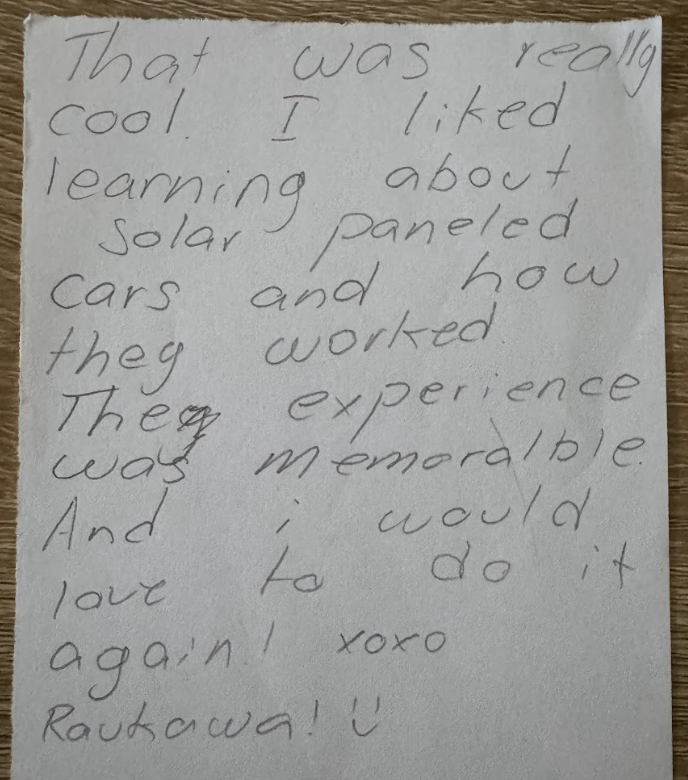 That was really
cool. I liked
learning about
solar paneled
cars and how
they worked.
The experience
was memoralble.
And i would
love to do it
again! xoxo
Raukawa! Ü